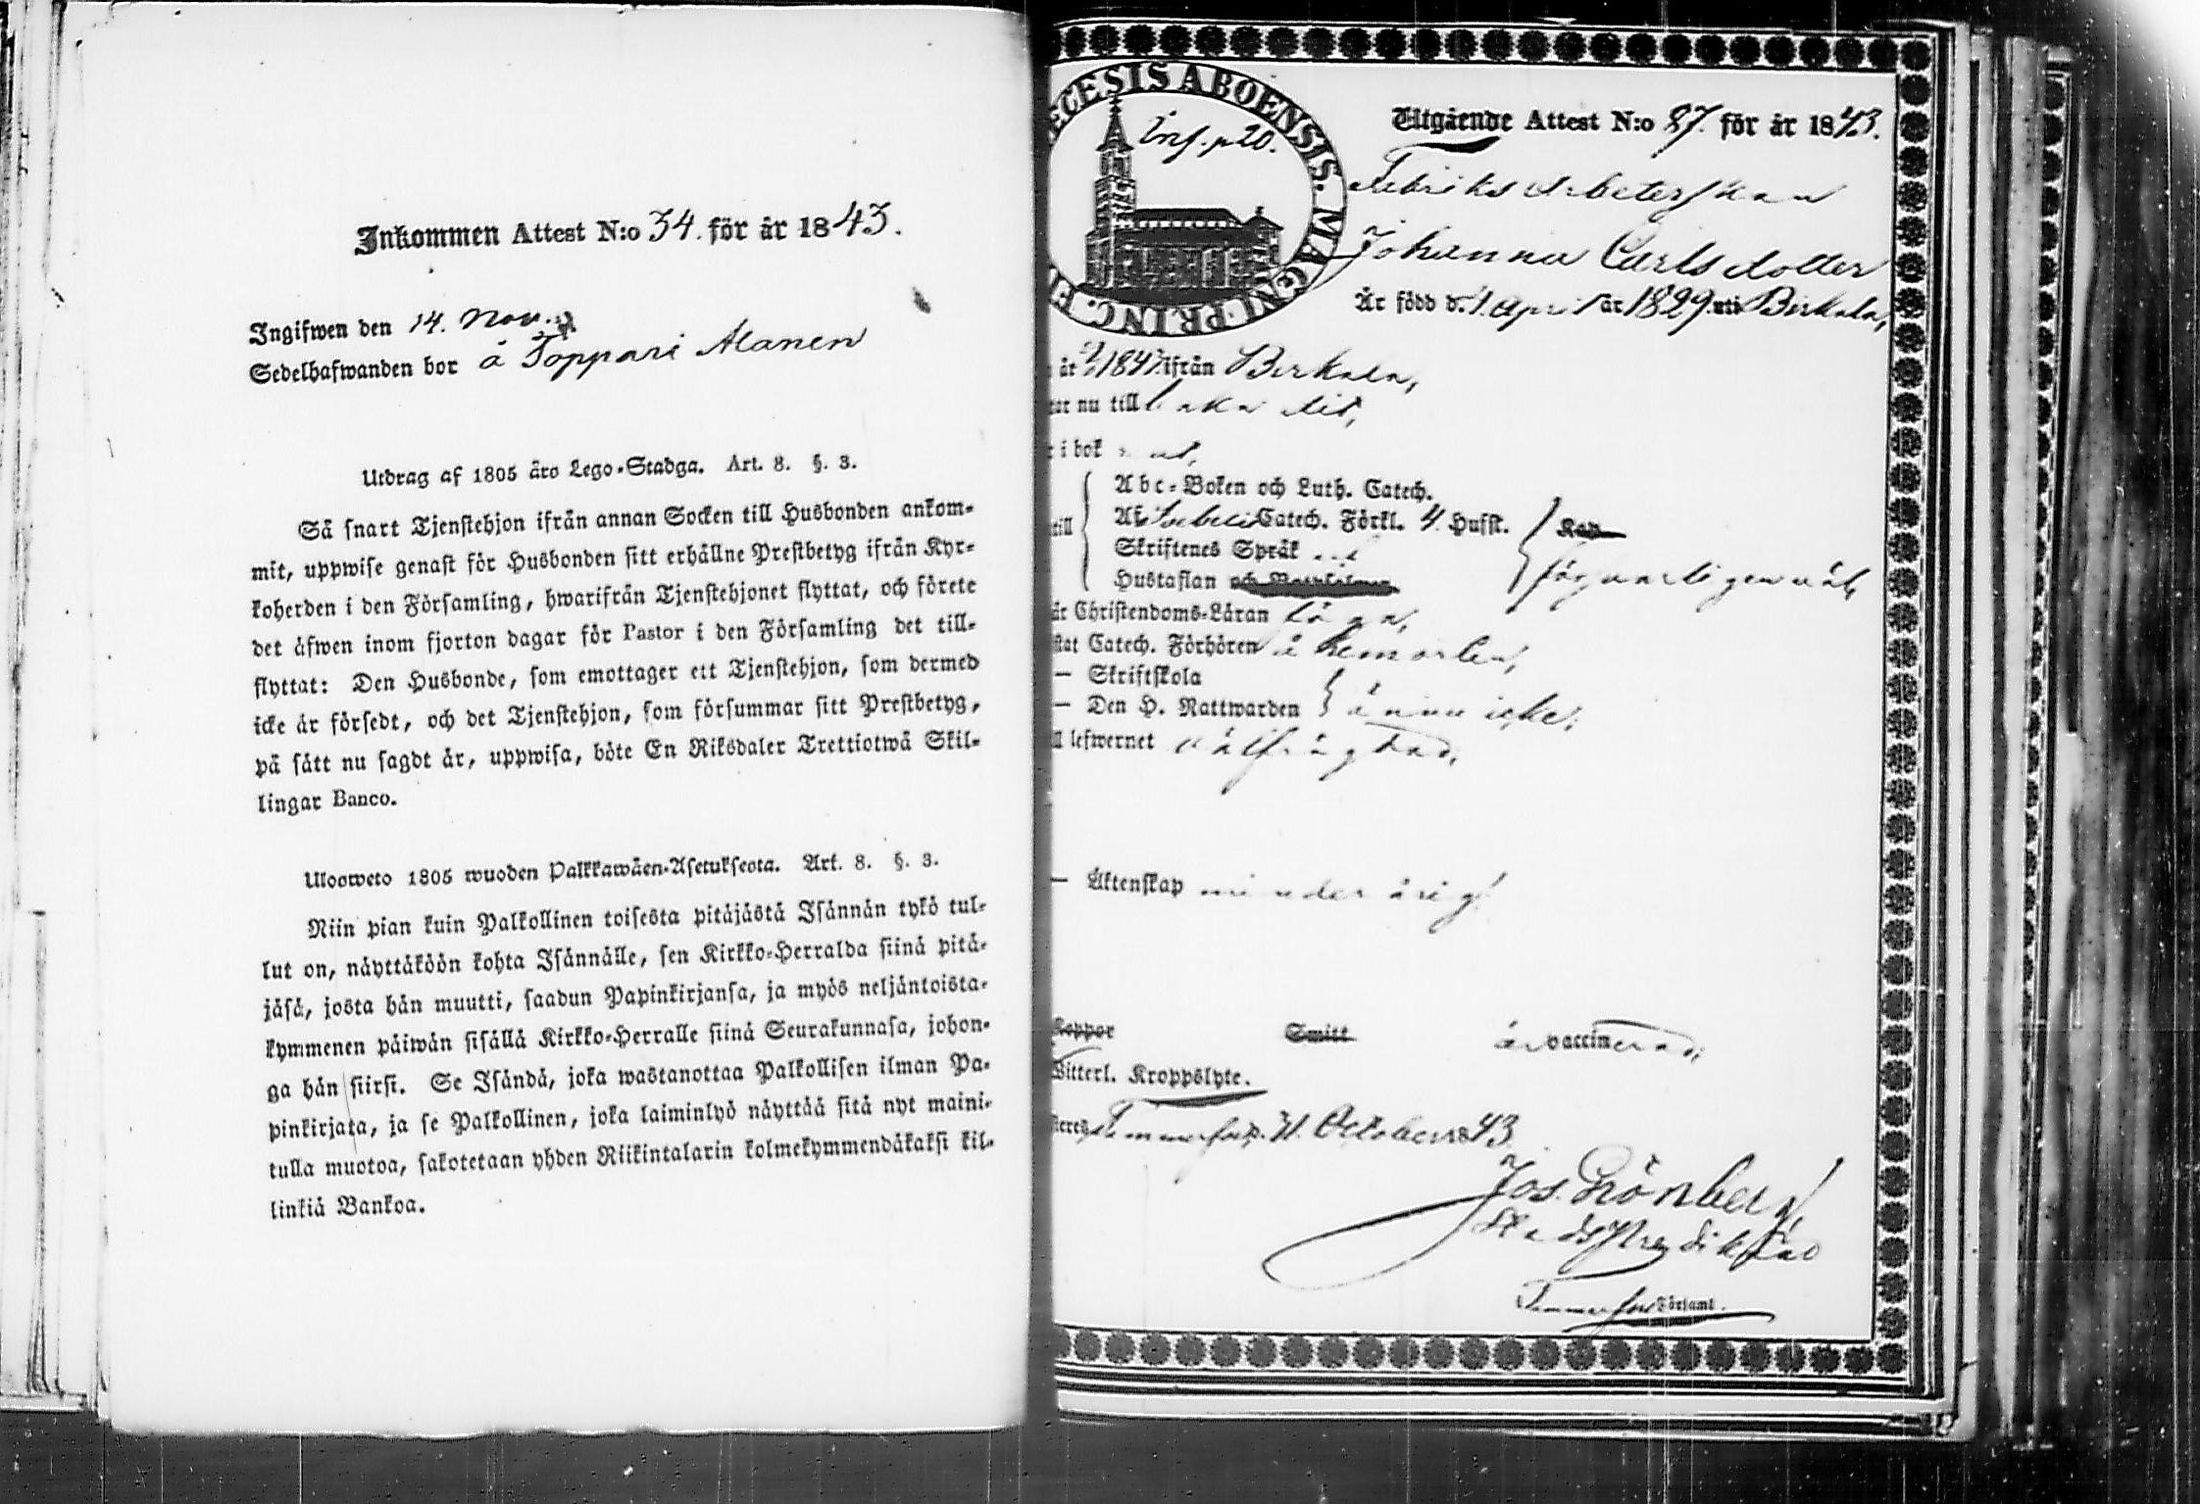 Inkommen Attest N:o 34. för år 1843.
Ingifwen den 14. Nov.
Sedelhafwanden bor å Toppari Alanen
Utdrag af 1805 års Lego-Stadga. Art. 8. §. 3.
Så snart Tjenstehjon ifrån annan Socken till Husbonden ankom-
mit, uppwise genast för Husbonden sitt erhållne Prestbetyg ifrån Kyr-
koherden i den Församling, hwarifrån Tjenstehjonet flyttat, och förete
det äfwen inom fjorton dagar för Pastor i den Församling det till-
flyttat: Den Husbonde, som emottager ett Tjenstehjon, som dermed
icke är försedt, och det Tjenstehjon, som försummar sitt Prestbetyg,
på sätt nu sagdt är, uppwisa, böte En Riksdaler Trettiotwå Skil-
lingar Banco.
Ulosweto 1805 wuoden Palkkawäen-Asetuksesta. Art. 8. §. 3.
Niin pian kuin Palkollinen toisesta pitäjästä Isännän tykö tul-
lut on, näyttäköön kohta Isännälle, sen Kirkko-Herralda siinä pitä-
jäsä, josta hän muutti, saadun Papinkirjansa, ja myös neljäntoista-
kymmenen päiwän sisällä Kirkko-Herralle siinä Seurakunnasa, johon-
ga hän siirsi. Se Isändä, joka wastanottaa Palkollisen ilman Pa-
pinkirjata, ja se Palkollinen, joka laiminlyö näyttää sitä nyt maini-
tulla muotoa, sakotetaan yhden Riikintalarin kolmekymmendäkaksi kil-
linkiä Bankoa.
ECESIS ABOENSIS. MAGNI PRINC. FI
Inf. p 20.
Utgående Attest N:o 87. för år 1843.
Fabriks Arbeterskan
Johanna Carls dotter
Är född d. 1 April år 1829. uti Birkala,
år 1843 ifrån Birkala,
tar nu till baka dit,
r i bok
Abc-Boken och Luth. Catech.
till Af Svebelii Catech. Förkl. 4. Hufst. Kan
Skriftenes Språk
Hustaflan och försvarligen väl,
är Christendoms-Läran
stat Catech. Förhören å hemorten,
— Skriftskola
— Den H. Nattwarden ännu icke,
ll lefwernet välfrägdad,
— Äktenskap minderårig
Koppor Smitt är vaccinerad,
Witterl. Kroppslyte.
Tammerfors. 31. October 1843
Jos. Grönberg
StadsPredikant
Tammerfors Församl.